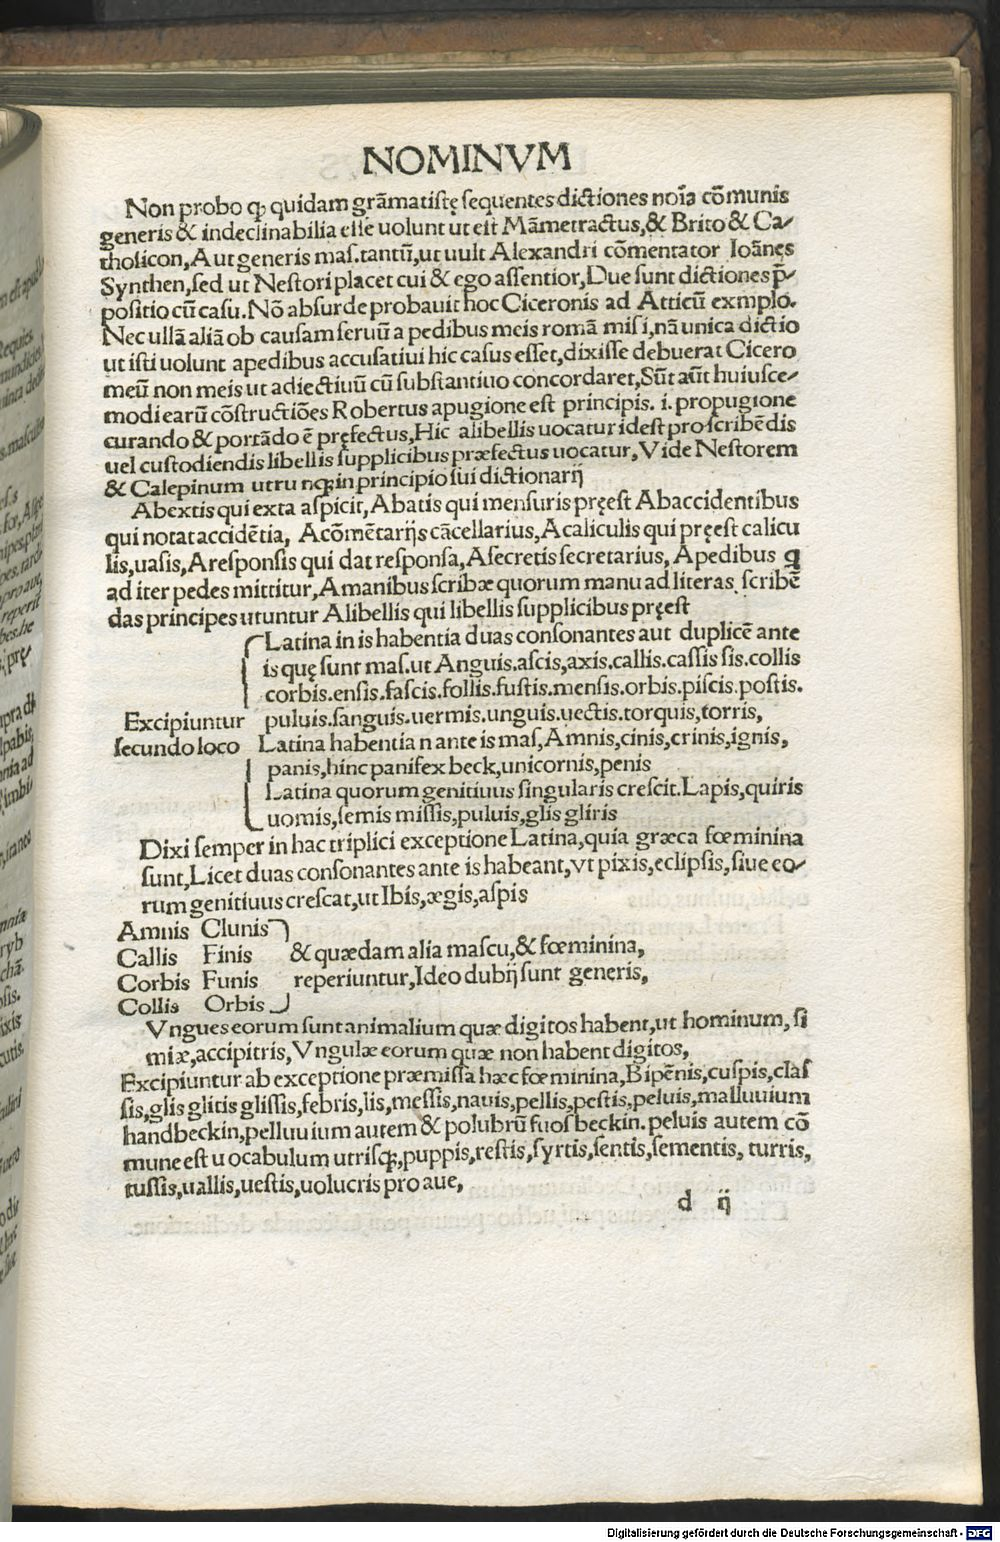 NOMINVM
Non probo qꝫ quidam grãmatistę sequentes dictiones noĩa cõmunis
generis & indeclinabilia esse uolunt ut est Mãmetractus,& Brito & Ca-
tholicon, Aut generis mas. tantũ,ut uult Alexandri cõmentator Ioãnes
Synthen,sed ut Nestori placet cui & ego assentior,Due sunt dictiones p̄-
positio cũ casu. Nõ absurde probauit hoc Ciceronis ad Atticũ exmplo.
Nec ullã aliã ob causam seruũ a pedibus meis romã misi,nã unica dictio
ut isti uolunt apedibus accusatiui hic casus esset,dixisse debuerat Cicero
meũ non meis ut adiectiuũ cũ substantiuo concordaret,Sũt aũt huiusce-
modi earũ cõstructiões Robertus apugione est principis. i. propugione
curando & portãdo ē pręfectus,Hic alibellis uocatur idest proscribēdis
uel custodiendis libellis supplicibus præfectus uocatur,Vide Nestorem
& Calepinum utrunqꝫ in principio sui dictionarij
Abextis qui exta aspicit, Abatis qui mensuris pręest Abaccidentibus
qui notat accidētia, Acõmētarijs cãcellarius, Acaliculis qui pręest calicu
lis,uasis, Aresponsis qui dat responsa, Asecretis secretarius, Apedibus q̃
ad iter pedes mittitur, Amanibus scribæ quorum manu ad literas scribē
das principes utuntur Alibellis qui libellis supplicibus pręest
Latina in is habentia duas consonantes aut duplicē ante
is quę sunt mas. ut Anguis.ascis,axis.callis.cassis sis.collis
corbis.ensis.fascis.follis.fustis.mensis.orbis.piscis.postis.
Excipiuntur puluis.sanguis.uermis.unguis.uectis.torquis,torris,
secundo loco Latina habentia n ante is mas, Amnis,cinis,crinis,ignis,
panis,hinc panifex beck,unicornis,penis
Latina quorum genitiuus singularis crescit. Lapis,quiris
uomis,semis missis,puluis,glis gliris
Dixi semper in hac triplici exceptione Latina,quia græca fœminina
sunt,Licet duas consonantes ante is habeant,vt pixis,eclipsis,siue eo-
rum genitiuus crescat,ut Ibis,ægis,aspis
Amnis Clunis
Callis Finis & quædam alia mascu,& fœminina,
Corbis Funis reperiuntur,Ideo dubij sunt generis,
Collis Orbis
Vngues eorum sunt animalium quæ digitos habent,ut hominum, si
miæ,accipitris, Vngulæ eorum quæ non habent digitos,
Excipiuntur ab exceptione præmissa hæc fœminina, Bipēnis,cuspis,clas
sis,glis glitis glissis,febris,lis,messis,nauis,pellis,pestis,peluis,malluuium
handbeckin,pelluuium autem & polubrũ fuosbeckin. peluis autem cõ
mune est uocabulum utrisqꝫ,puppis,restis,syrtis,sentis,sementis, turris,
tussis,uallis,uestis,uolucris pro aue,
d ij
Digitalisierung gefördert durch die Deutsche Forschungsgemeinschaft - DFG